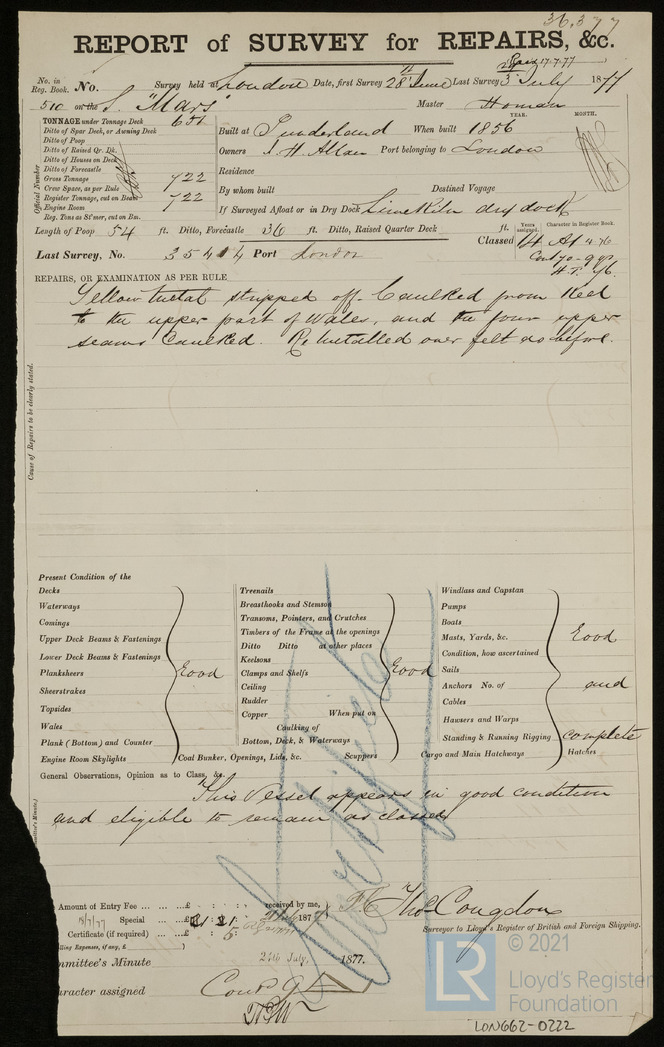 36,377
REPORT of SURVEY for REPAIRS, &c.
No. in Reg. Book. No. Survey held at London Date, first Survey 28th June Last Survey 3rd July 1877
510 on the S. "Mars" Master Homan
TONNAGE under Tonnage Deck 651
Ditto of Spar Deck, or Awning Deck
Ditto of Poop
Ditto of Raised Qr. Dk.
Ditto of Houses on Deck
Ditto of Forecastle
Gross Tonnage 722
Crew Space, as per Rule
Register Tonnage, cut on Beam 722
Engine Room
Reg. Tons as St'mer, cut on Bm.
Official Number
YEAR. MONTH.
Built at Sunderland When built 1856
Owners J. H. Allan Port belonging to London
Residence
By whom built Destined Voyage
If Surveyed Afloat or in Dry Dock Limekiln dry dock
Length of Poop 54 ft. Ditto, Forecastle 36 ft. Ditto, Raised Quarter Deck ft.
Years assigned. Character in Register Book.
Classed 14 A1
Last Survey, No. 35414 Port London
REPAIRS, OR EXAMINATION AS PER RULE
Yellow metal stripped off. Caulked from Keel
to the upper part of Wales, and the four upper
seams Caulked. Remetalled over felt as before.
Cause of Repairs to be clearly stated.
Present Condition of the
Decks
Waterways
Comings
Upper Deck Beams & Fastenings
Lower Deck Beams & Fastenings
Planksheers Good
Sheerstrakes
Topsides
Wales
Plank (Bottom) and Counter
Engine Room Skylights
Treenails
Breasthooks and Stemson
Transoms, Pointers, and Crutches
Timbers of the Frame at the openings
Ditto Ditto at other places
Keelsons
Clamps and Shelfs Good
Ceiling
Rudder
Copper When put on
Caulking of
Bottom, Deck, & Waterways
Coal Bunker, Openings, Lids, &c. Scuppers
Windlass and Capstan
Pumps
Boats
Masts, Yards, &c. Good
Condition, how ascertained
Sails
Anchors No. of and
Cables
Hawsers and Warps
Standing & Running Rigging complete
Cargo and Main Hatchways Hatches
General Observations, Opinion as to Class, &c.
This Vessel appears in good condition
and eligible to remain as classed
Certificate
Amount of Entry Fee ... ... £ : : received by me,
18/7/77 Special ... ... £ 187
Certificate (if required) ... £ : 5 :
Thos Congdon
Surveyor to Lloyd's Register of British and Foreign Shipping.
mmittee's Minute 24th July, 1877.
aracter assigned
© 2021
LR
Lloyd's Register
Foundation
LON662-0222